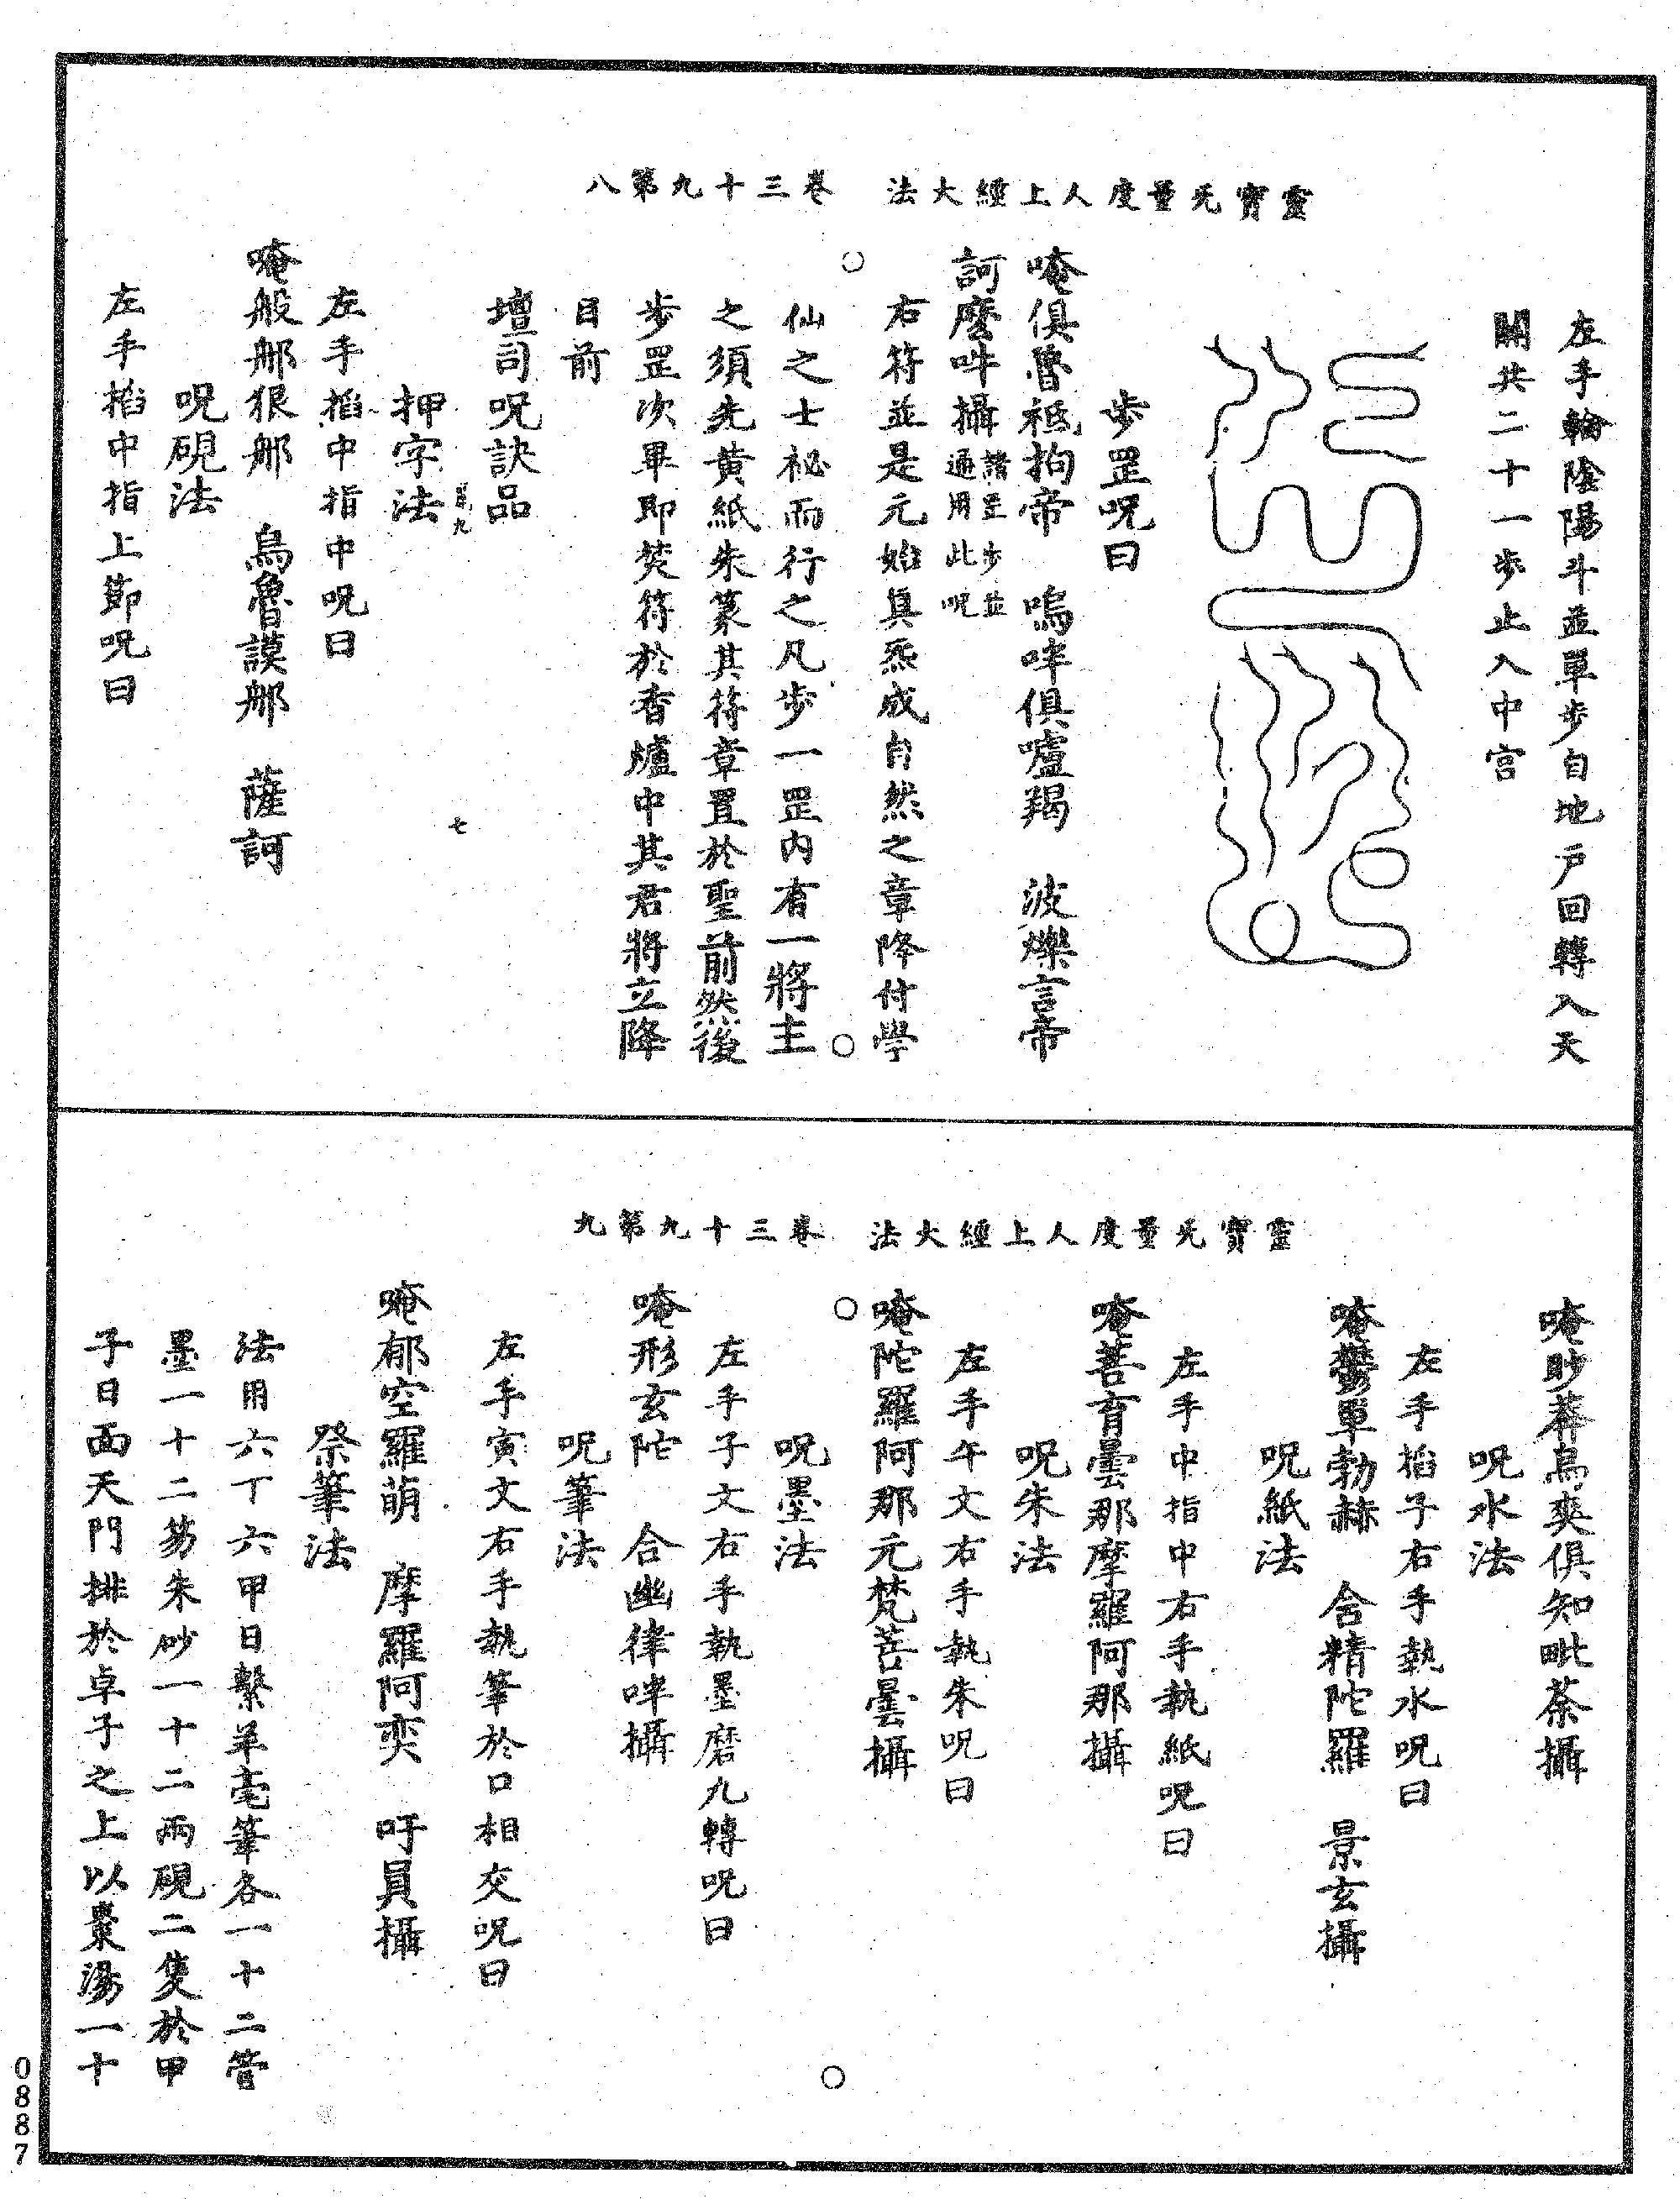 靈寶无量度人上經大法　卷三十九第八
左手輪陰陽斗並單步自地戶回轉入天
關共二十一步止入中宮
步罡呪曰
唵俱魯祗拘帝　嗚吽俱嚧羯　波爍言帝
訶麼吽攝諸罡步並通用此呪
右符並是元始真炁成自然之章降付學
仙之士祕而行之凡步一罡內有一將主
之須先黃紙朱篆其符章置於聖前然後
步罡次畢即焚符於香爐中其君將立降
目前
壇司呪訣品
押字法
左手掐中指中呪曰
唵般郍狠郍　烏魯謨郍　薩訶
呪硯法
左手掐中指上節呪曰
七
靈寶无量度人上經大法　卷三十九第九
唵眇莽烏爽俱知毗荼攝
呪水法
左手掐子右手執水呪曰
唵鬱單勃赫　含精陀羅　景玄攝
呪紙法
左手中指中右手執紙呪曰
唵菩育曇那摩羅阿那攝
呪朱法
左手午文右手執朱呪曰
唵陀羅阿那元梵菩曇攝
呪墨法
左手子文右手執墨磨九轉呪曰
唵形玄陀　合幽律吽攝
呪筆法
左手寅文右手執筆於口相交呪曰
唵郁空羅萌　摩羅阿奕　吁員攝
祭筆法
法用六丁六甲日繫羊毫筆各一十二管
墨一十二笏朱砂一十二兩硯二隻於甲
子日面天門排於卓子之上以棗湯一十
0887